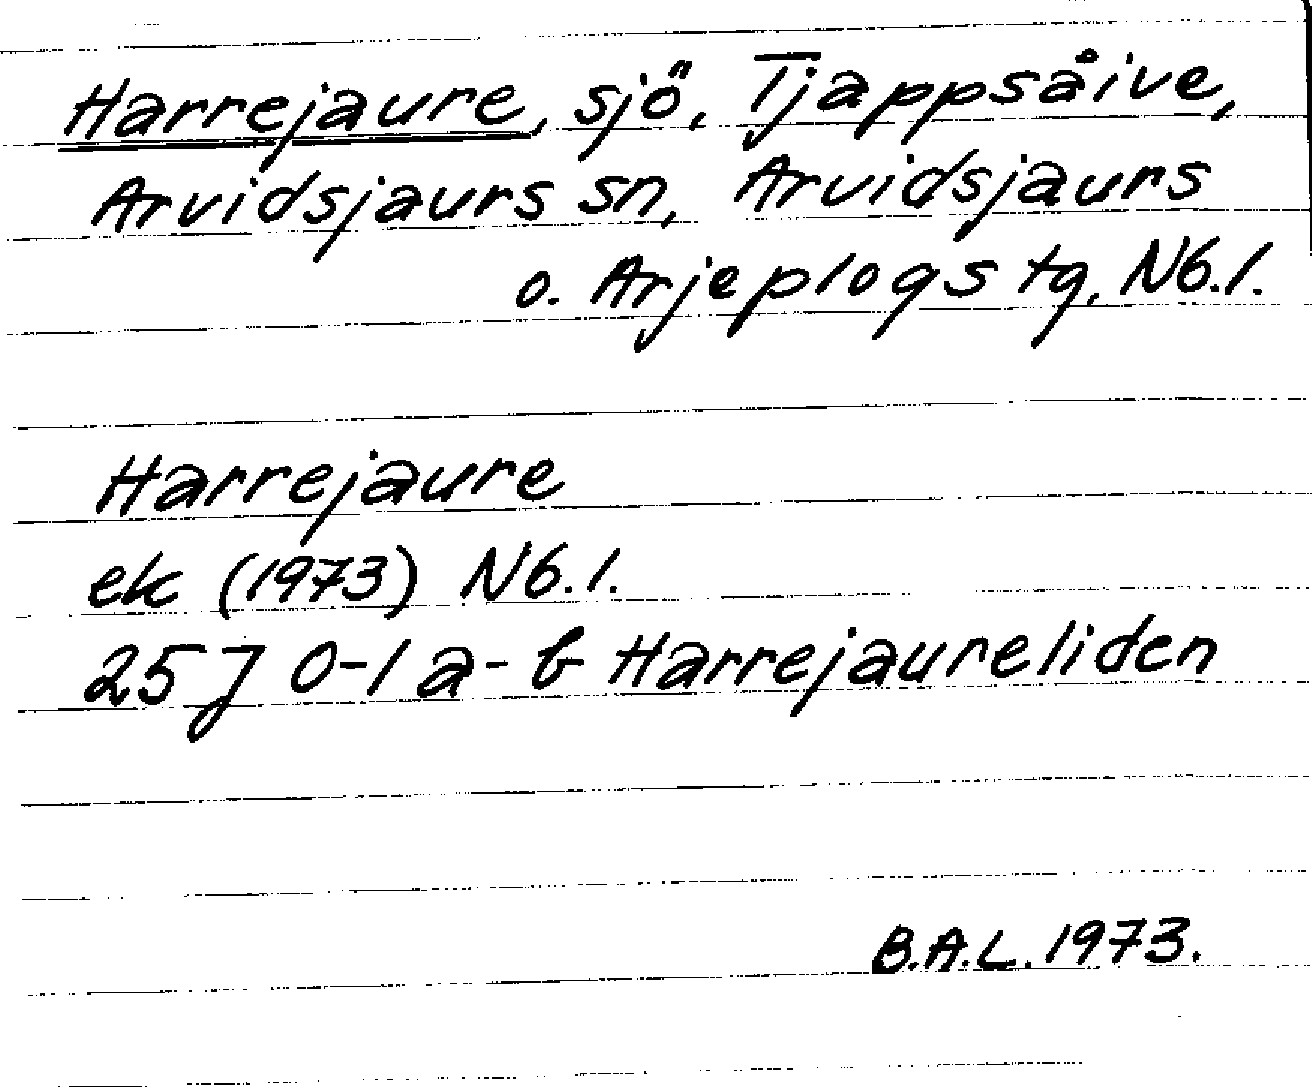 Harrejaure, sjö, Tjappsåive,
Arvidsjaurs sn, Arvidsjaurs
o. Arjeplogs tg, Nb.l.
Harrejaure
ek (1973) Nb.l.
25 J 0-1 a-b Harrejaureliden
B.A.L. 1973.